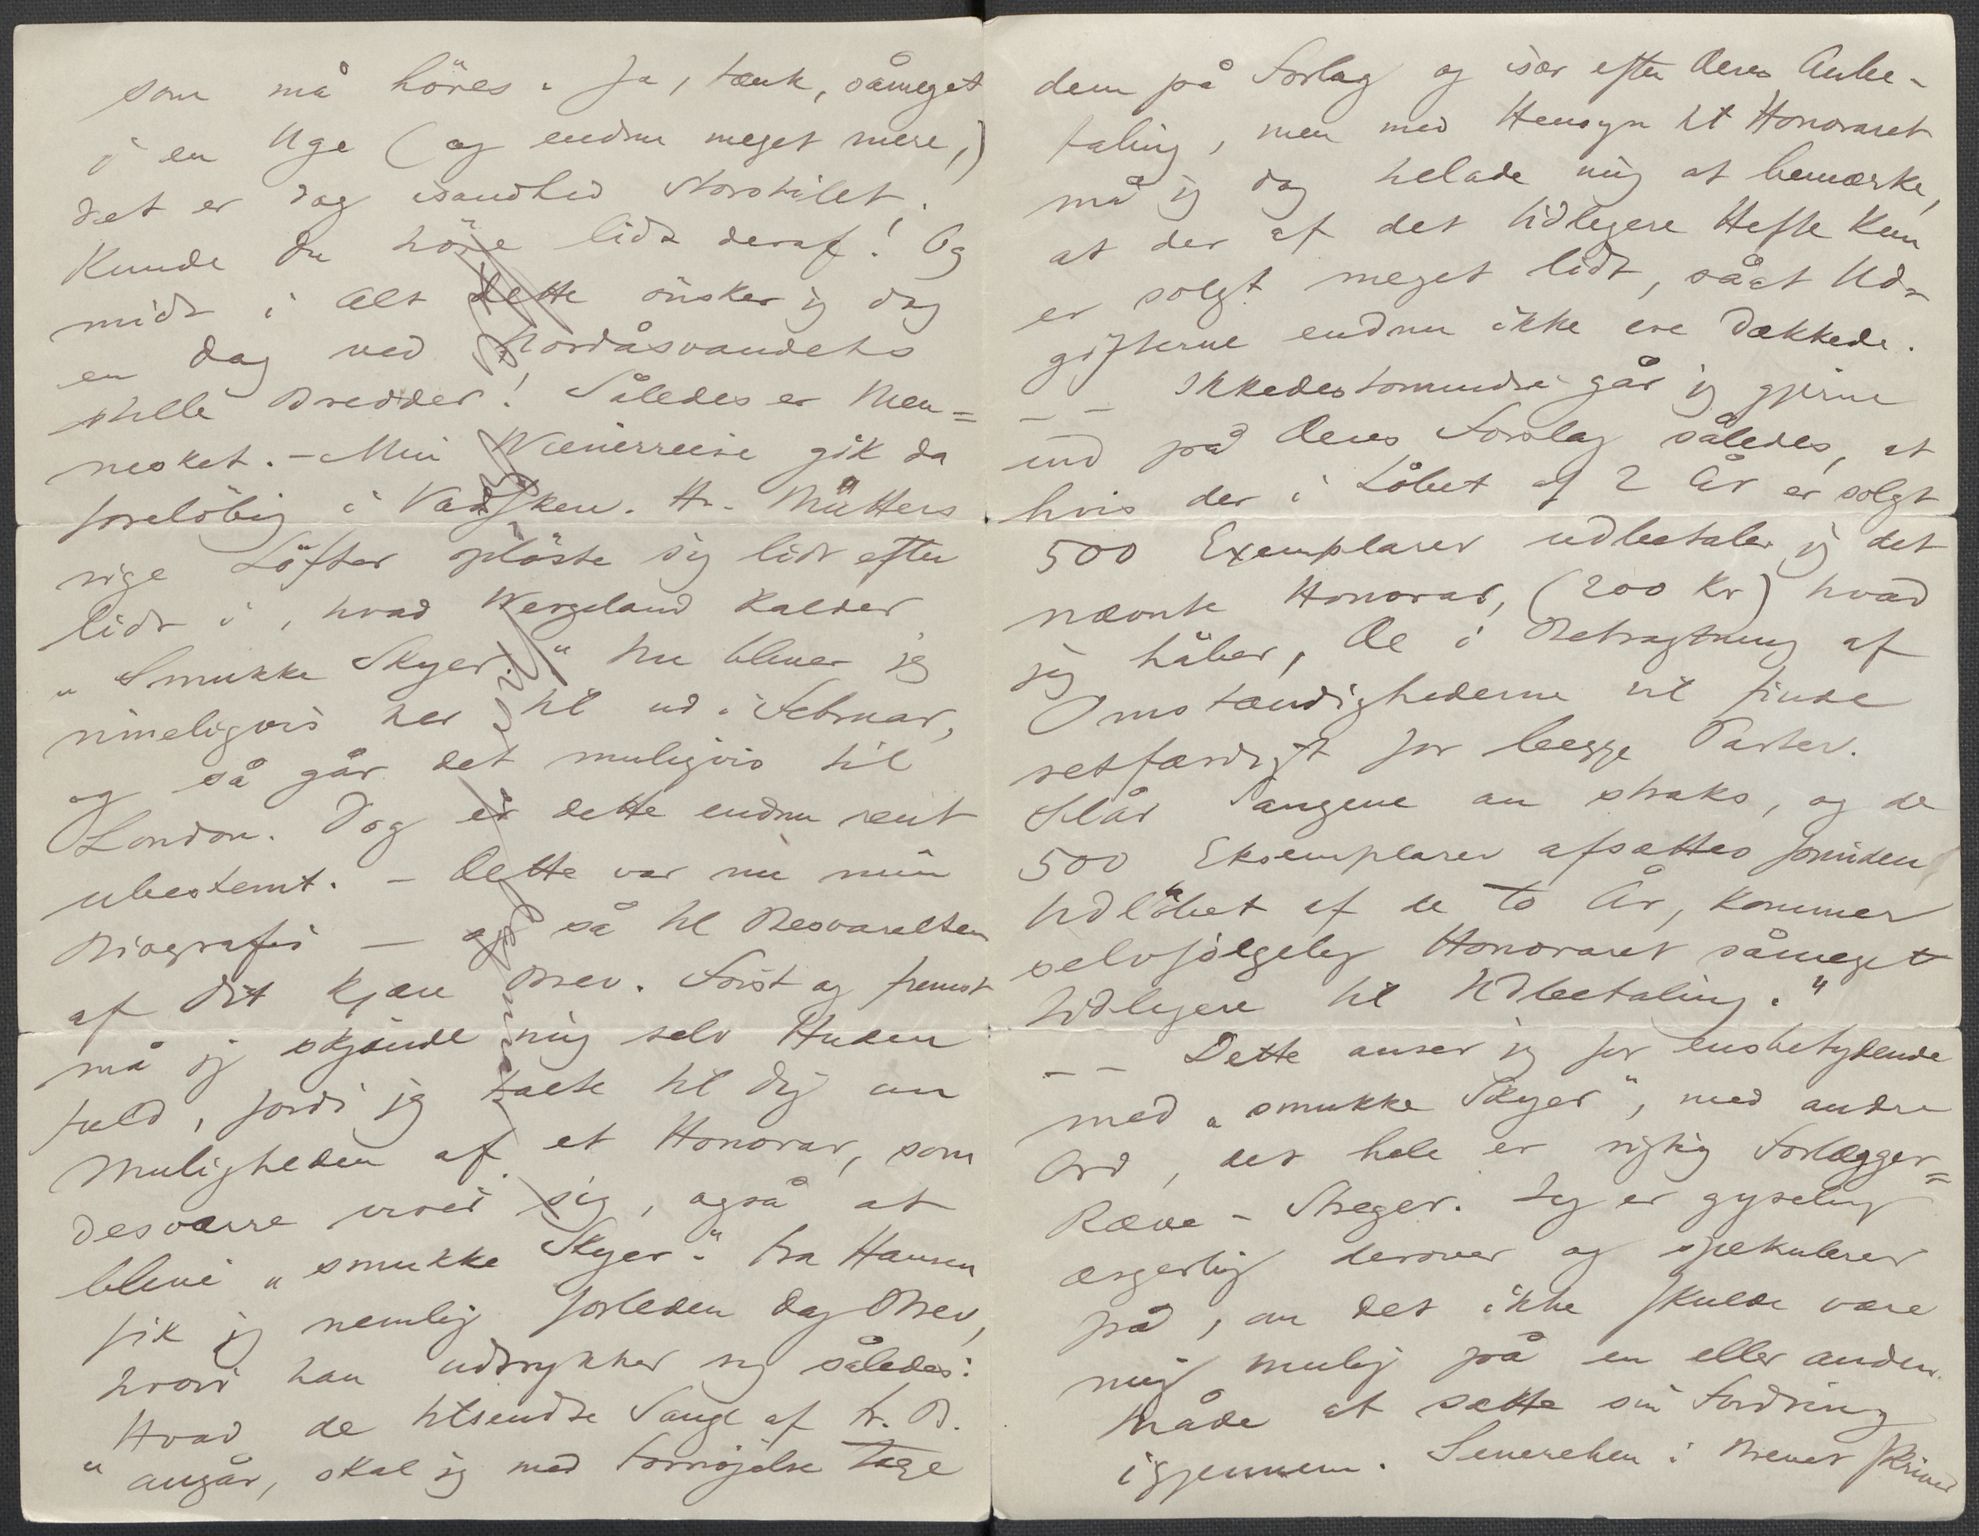 som må höres. Ja, tænk, såmeget
i en Uge (og endnu meget mere,)
det er dog isandhed Storstilet.
Kunde du höre lidt deraf! Og
midt i Alt dette önsker jeg dog
en Dag ved Nordåsvandets
stille Bredder! Således er Men=
nesket. – Min Wienerreise gik da
foreløbig i Vadsken. Hr.
rige Löfter oplöste sig lidt efter
lidt i, hvad Wergeland kalder
"Smukke Skyer." Nu bliver jeg
rimeligvis her til ud i Februar,
og så går det muligvis til
London. Dog er dette endnu rent
ubestemt. – Dette var nu min
Biografi – og så til Besvarelsen
af Dit kjære Brev. Först og fremst
må jeg skjænde mig selv Huden
fuld, fordi jeg talte til Dig om
Muligheden af et Honorar, som
desværre viser sig, også at
blive "smukke Skyer." Fra Hansen
fik jeg nemlig forleden Dag Brev,
hvori han udtrykker sig således:
"Hvad de tilsendte Sange af Fr. B.
angår, skal jeg med Fornöjelse tage
dem på Forlag og især efter Deres Anbe-
faling, men med Hensyn til Honoraret
må jeg dog tillade mig at bemærke,
at der af det tidligere Hefte kun
er solgt meget lidt, såat Ud-
gifterne endnu ikke ere dækkede.
– – Ikkedestomindre går jeg gjerne
ind på Deres Forslag således, at
hvis der i Löbet af 2 År er solgt
500 Exemplarer udbetaler jeg det
nævnte Honorar, (200 Kr) hvad
jeg håber, De i Betragtning af
Omstændighederne vil finde
retfærdigt for begge Parter.
Slår Sangene an straks, og de
500 Eksemplarer afsættes forinden
Udlöbet af de to År, kommer
selvfölgelig Honoraret såmeget
tidligere til Udbetaling."
– – Dette anser jeg for ensbetydende
med "smukke Skyer", med andre
Ord, det hele er rigtig Forlægger=
Ræve-Streger. Jeg er gyselig
ærgerlig derover og spekulerer
på, om det ikke skulde være
mig mulig på en eller anden
Måde at sætte sin Fordring
igjennem. Senerehen i Brevet skriver